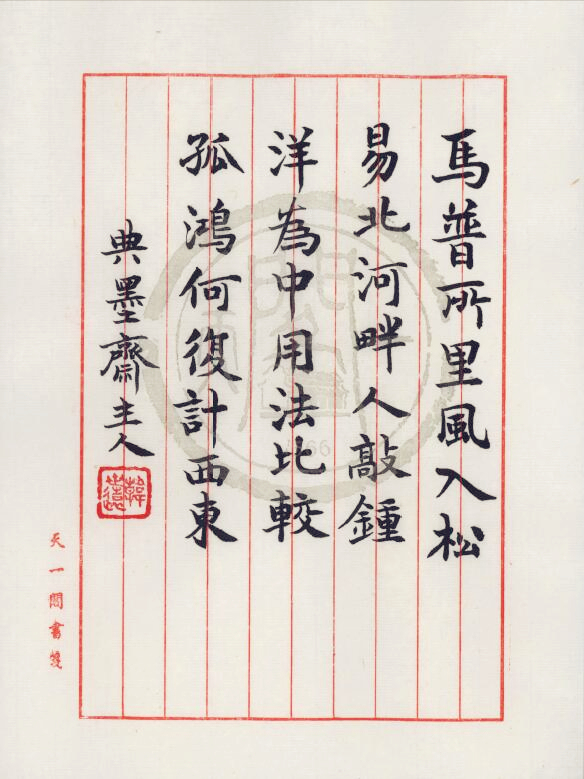 馬普所里風入松
易北河畔人敲鍾
洋為中用法比較
孤鴻何復計西東
典墨齋主人
天一閣書箋